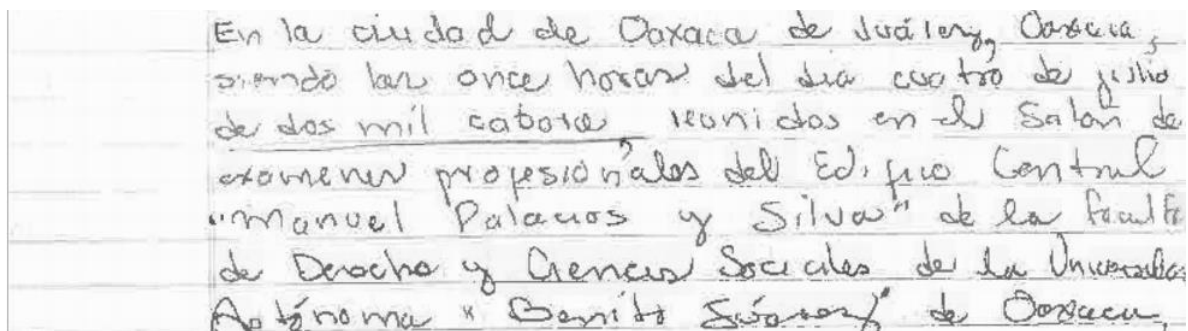 En la ciudad de Oaxaca de Juárez, Oaxaca,
siendo las once horas del dia cuatro de julio
de dos mil catorce, reunidos en el Salón de
examenes profesionales del Edificio Central
"Manuel Palacios y Silva" de la Facultad
de Derecho y Ciencias Sociales de la Universidad
Autónoma "Benito Juárez" de Oaxaca,